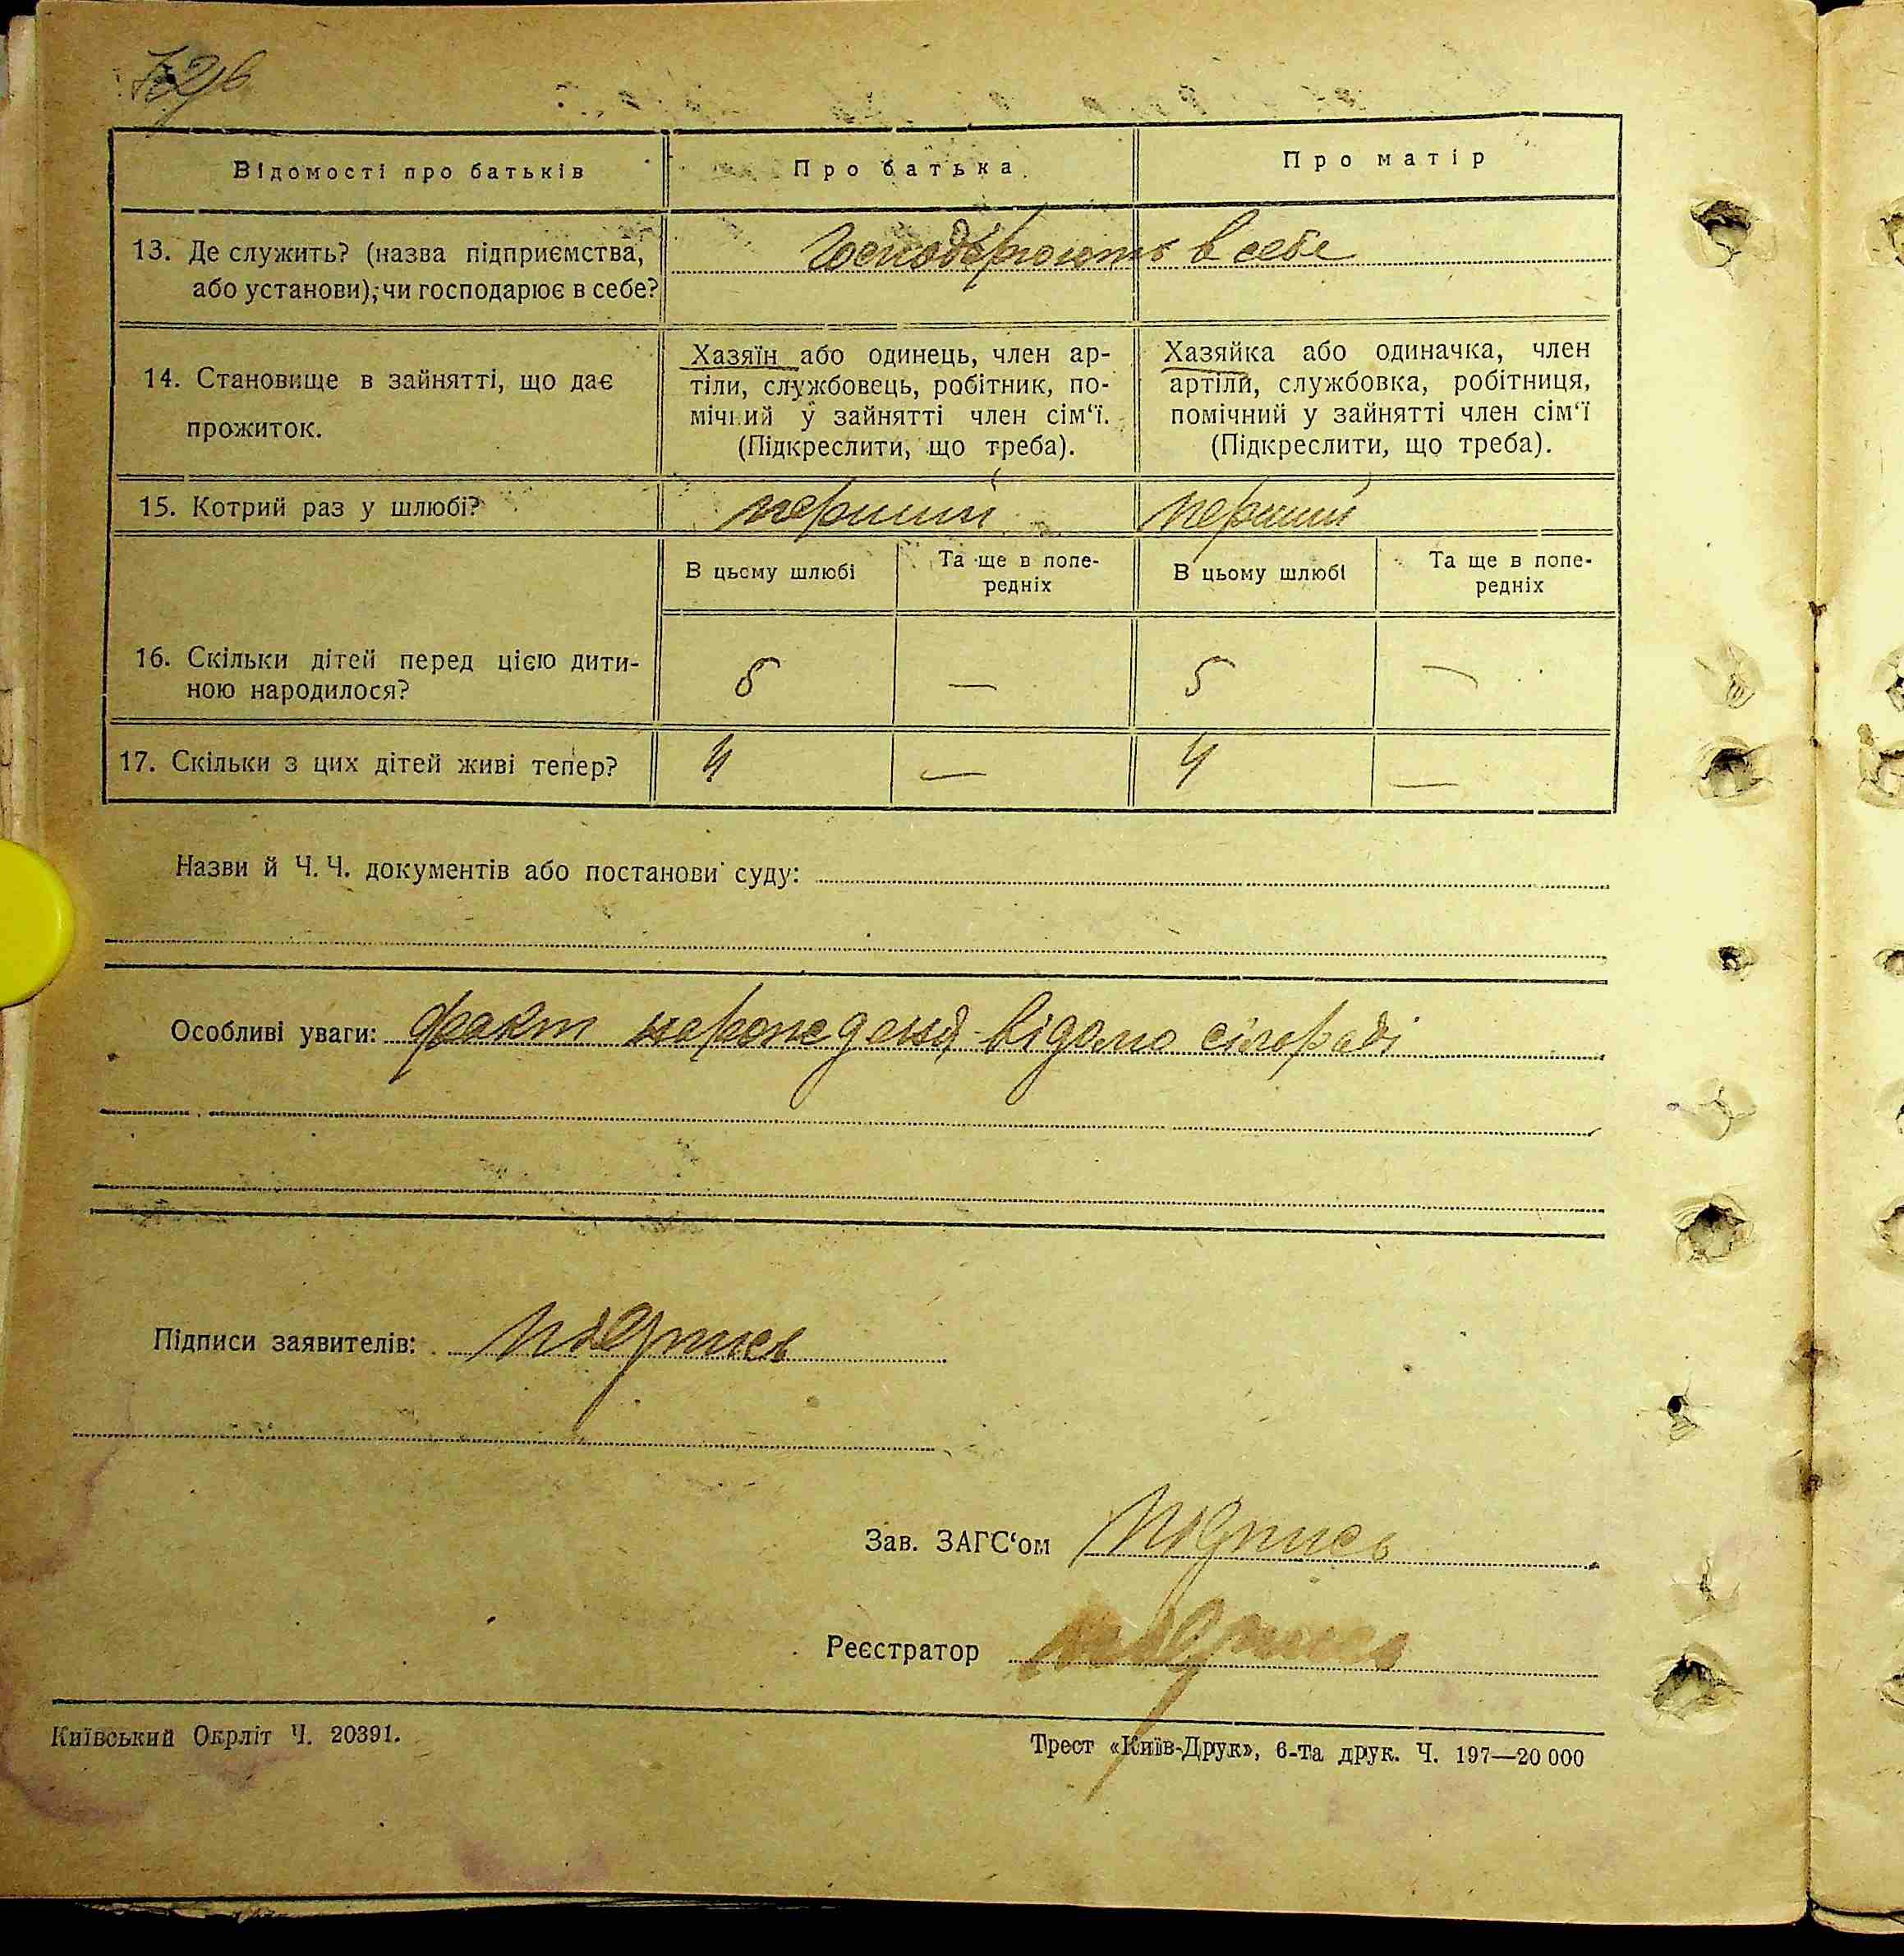 Відомості про батьків
Про батька
Про матір
13. Де служить? (назва підприємства,
або установи), чи господарює в себе?
Господарюють в себе
14. Становище в зайнятті, що дає
прожиток.
Хазяїн або одинець, член ар-
тіли, службовець, робітник, по-
мічний у зайнятті член сім'ї.
(Підкреслити, що треба).
Хазяйка або одиначка, член
артіли, службовка, робітниця,
помічний у зайнятті член сім'ї
(Підкреслити, що треба).
15. Котрий раз у шлюбі?
перший
перший
В цьому шлюбі
Та ще в попе-
редніх
В цьому шлюбі
Та ще в попе-
редніх
16. Скільки дітей перед цією дити-
ною народилося?
5 — 5 —
17. Скільки з цих дітей живі тепер?
4 — 4 —
Назви й Ч. Ч. документів або постанови суду:
Особливі уваги: факт народження відомо сільраді
Підписи заявителів: підпись
Зав. ЗАГС'ом підпись
Реєстратор підпись
Київський Окрліт Ч. 20391.
Трест «Київ-Друк», 6-та друк. Ч. 197—20 000